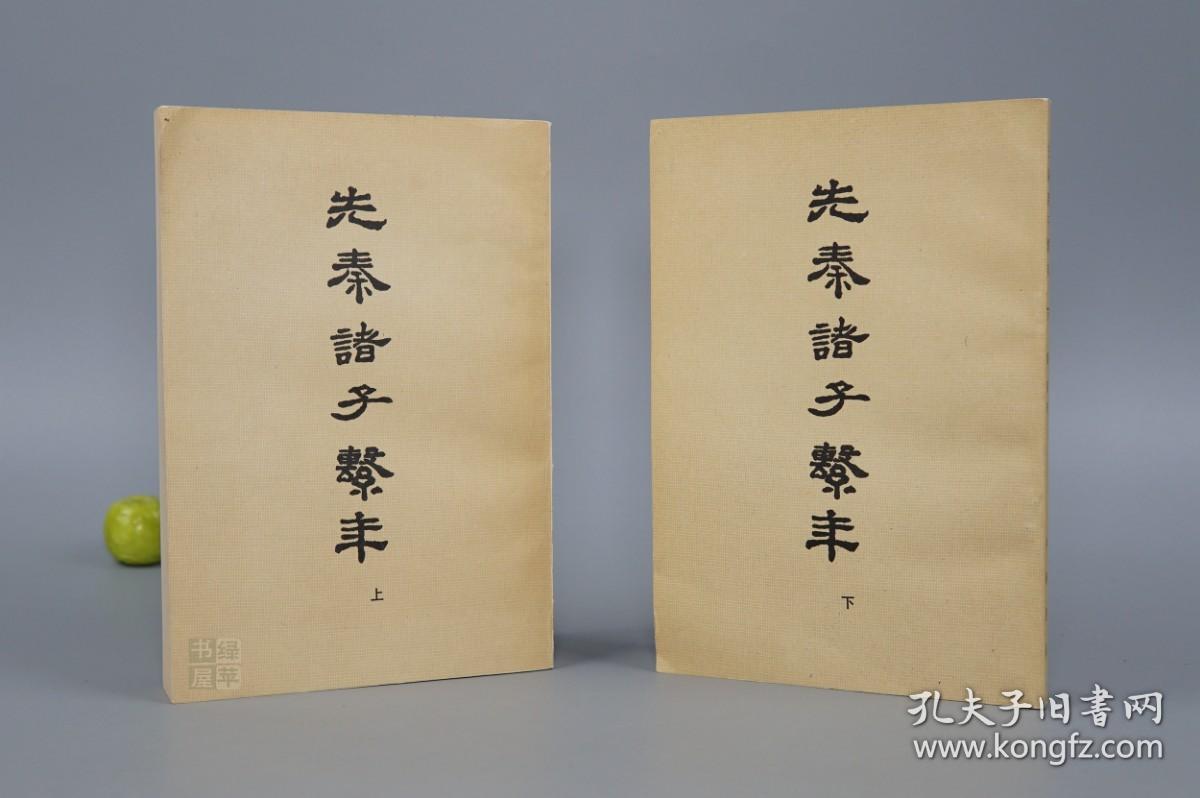 先秦諸子繫年
上
先秦諸子繫年
下
绿苹
书屋
孔夫子旧書网
www.kongfz.com